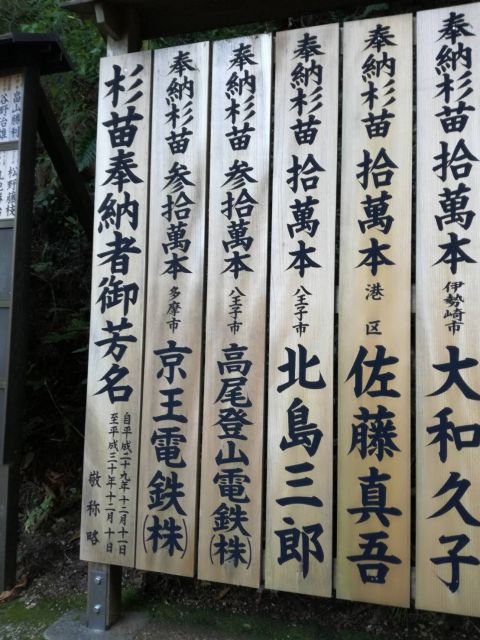 杉苗奉納者御芳名
自平成二十九年十二月十一日
至平成三十年十二月十日
敬称略
奉納杉苗 参拾萬本
多摩市
京王電鉄(株)
奉納杉苗 参拾萬本
八王子市
高尾登山電鉄(株)
奉納杉苗 拾萬本
八王子市
北島三郎
奉納杉苗 拾萬本
港区
佐藤真吾
奉納杉苗 拾萬本
伊勢崎市
大和久子